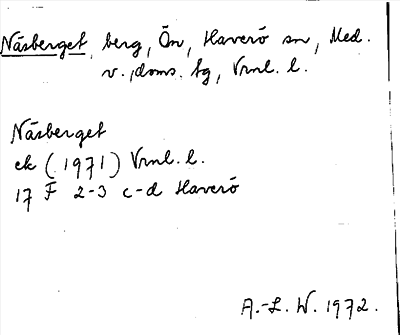 Näsberget, berg, Ön, Haverö sn, Med.
v., doms. tg, Vrnl. l.
Näsberget
ek (1971) Vrnl. l.
17 F 2-3 c-d Haverö
A.-L. W. 1972.